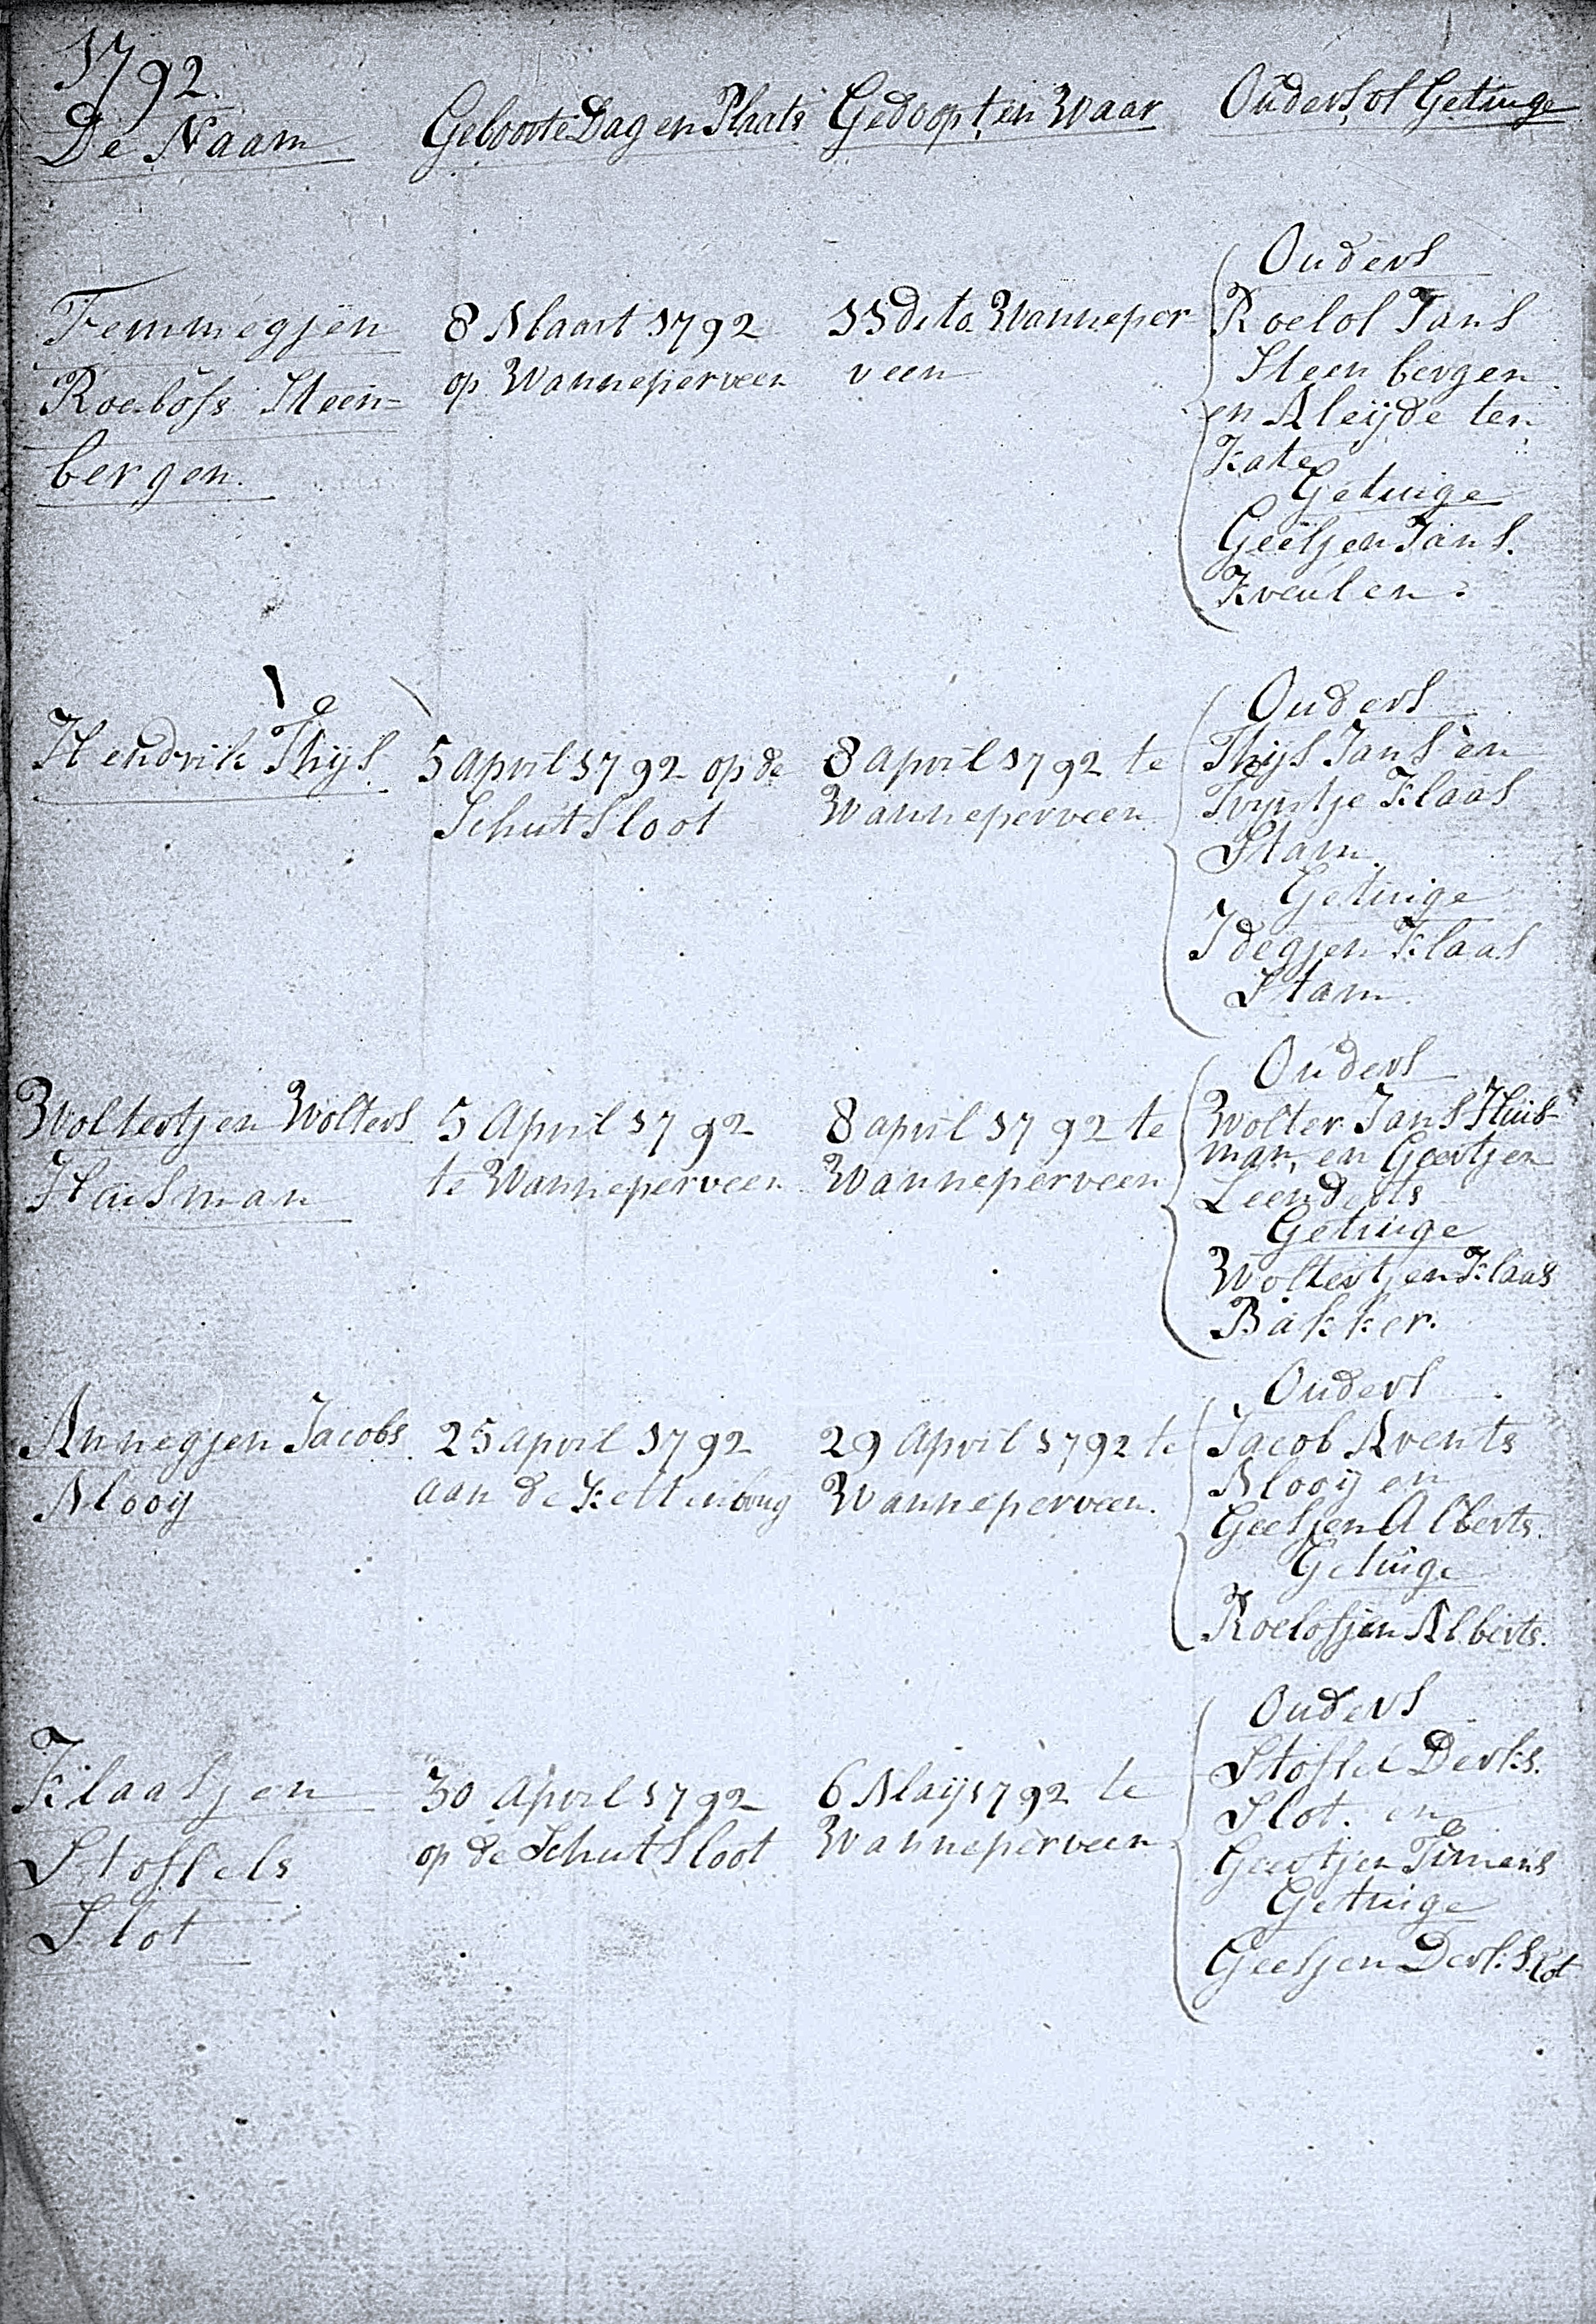 1792.
De Naam
Geboorte Dag en Plaats
Gedoopt, en Waar
Ouders, of Getuige
Femmegjen
Roelofs Steen=
bergen.
8 Maart 1792
op Wanneperveen
11 dito Wanneper
veen
Ouders
Roelof Jans
Steenbergen
en Aleijde ten
Kate
Getuige
Geesjen Jans.
Kreulen.
Hendrik Thijs
5 April 1792 op de
Schutsloot
8 April 1792 te
Wanneperveen
Ouders
Thijs Jans en
Trijntje Klaas
Stam.
Getuige
Idegjen Klaas
Stam
Woltertjen Wolters
Huisman
5 April 1792
te Wanneperveen
8 april 1792 te
Wanneperveen
Ouders
Wolter Jans Huis-
man, en Geertjen
Leenderts
Getuige
Woltertjen Klaas
Bakker.
Annegjen Jacobs
Mooij
25 april 1792
aan de
29 April 1792 te
Wanneperveen.
Ouders
Jacob Arents
Mooij en
Geesjen Alberts.
Getuige
Roelofjen Alberts.
Klaasjen
Stoffels
Slot
30 April 1792
op de Schutsloot
6 Maij 1792 te
Wanneperveen
Ouders
Derks.
Slot. en
Geertjen Timens
Getuige
Geesjen Derks Slot